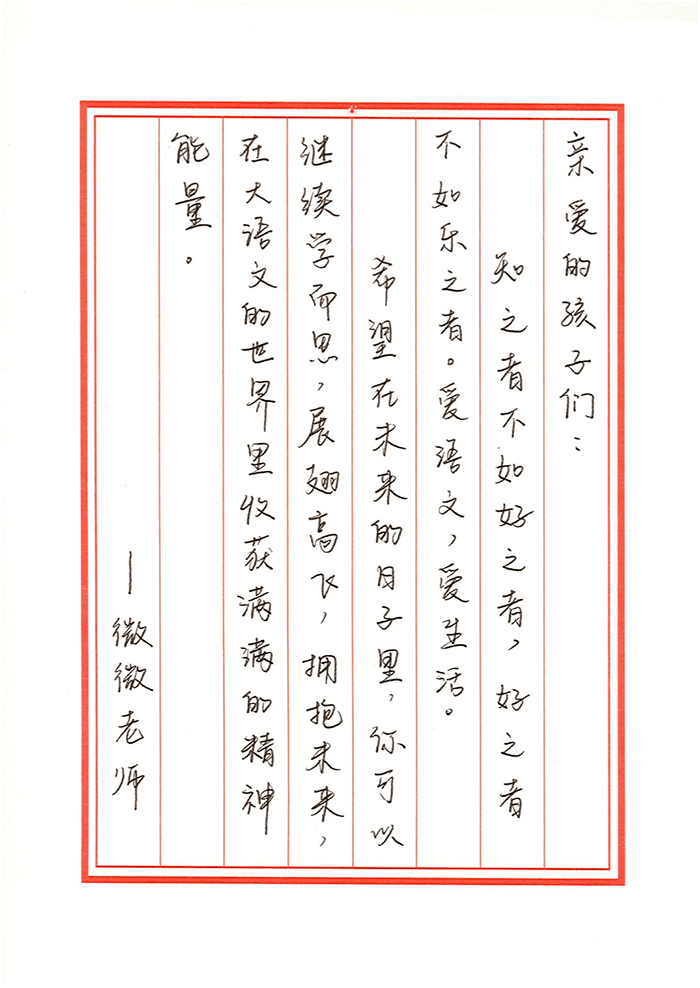 亲爱的孩子们：
知之者不如好之者，好之者
不如乐之者。爱语文，爱生活。
希望在未来的日子里，你可以
继续学而思，展翅高飞，拥抱未来，
在大语文的世界里收获满满的精神
能量。
—微微老师